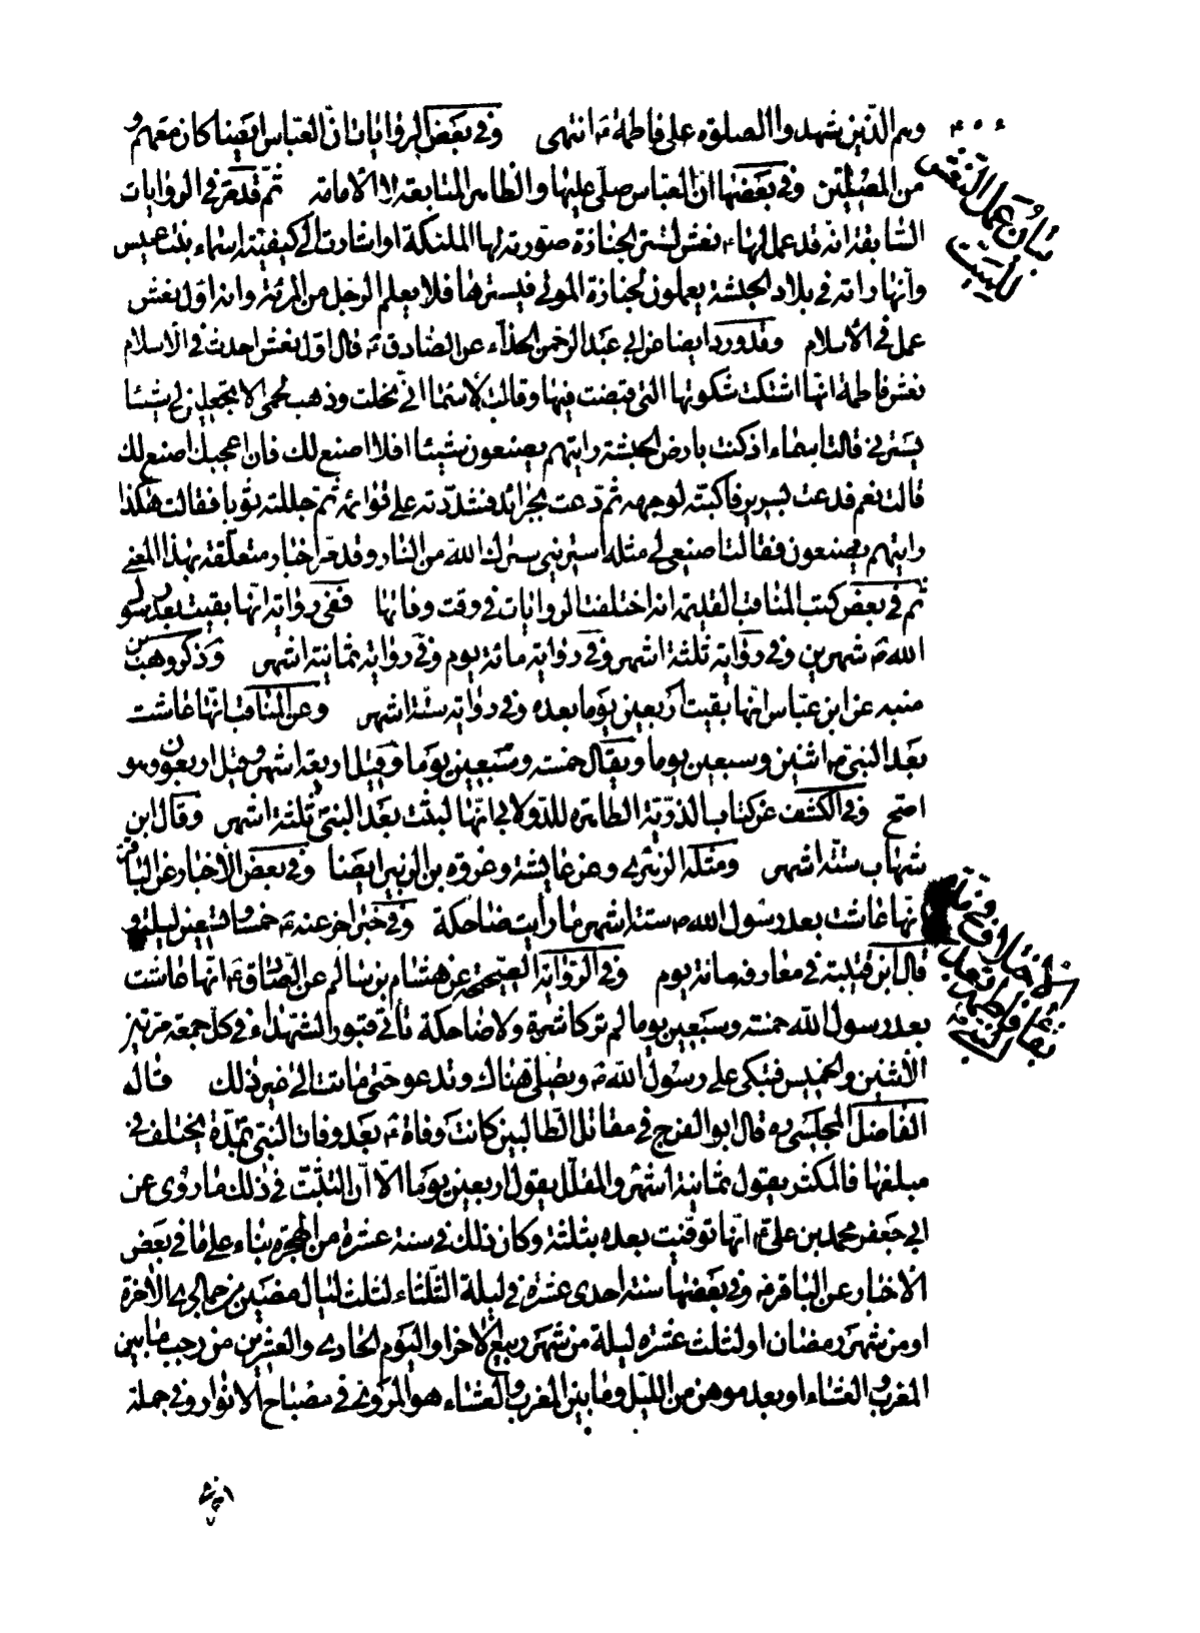 وهم الذين شهدوا الصلوة على فاطمة ع انتهى وفي بعض الروايات ان العباس ايضا كان معهم و
من المصلين وفي بعضها ان العباس صلى عليها والظاهر المتابعة لا الامامة ثم قد مر في الروايات
السابقة انه قد عمل لها ع نعش لستر الجنازة صورته لها الملئكة او اشارت الى كيفيته اسماء بنت عميس
وانها راته في بلاد الحبشة يعملون لجنازة الموتى فيسترها فلا يعلم الرجل من المرئة وانه اول نعش
عمل في الاسلام وقد ورد ايضا عن ابي عبد الرحمن الحذاء عن الصادق ع قال اول نعش احدث في الاسلام
نعش فاطمة انها اشتكت شكوتها التي قبضت فيها وقالت لأسماء اني نحلت وذهب لحمى الا تجعلين لي شيئا
يسترني قالت اسماء اذ كنت بارض الحبشة رايتهم يصنعون شيئا افلا اصنع لك فان اعجبك اصنع لك
قالت نعم فدعت بسرير فاكبته لوجهه ثم دعت بجرائد فشددته على قوائمه ثم جللته ثوبا فقالت هكذا
رايتهم يصنعون فقالت اصنعي لي مثله استريني سترك الله من النار وقد مر اخبار متعلقة بهذا المعنى
ثم في بعض كتب المناقب القديمة انه اختلفت الروايات في وقت وفاتها ففي رواية انها بقيت بعد رسول
الله ص شهرين وفي رواية ثلثة اشهر وفي رواية مائة يوم وفي رواية ثمانية اشهر وذكر وهب بن
منبه عن ابن عباس انها بقيت اربعين يوما بعده وفي رواية ستة اشهر وعن المناقب انها عاشت
بعد النبي ص اثنين وسبعين يوما ويقال خمسة وسبعين يوما وقيل اربعة اشهر وقيل اربعون وهو
اصح وفي الكشف عن كتاب الذرية الطاهرة للدولابي انها لبثت بعد النبي ثلثة اشهر وقال ابن
شهاب ستة اشهر ومثله الزهري وعن عايشة وعروة بن الزبير ايضا وفي بعض الأخبار عن الباقر
انها عاشت بعد رسول الله ص ستة اشهر ما رايت ضاحكة وفي خبر اخر عنه ع خمسا وتسعين ليلة و
قال ابن قتيبة في معارفه مائة يوم وفي الرواية الصحيحة عن هشام بن سالم عن الصادق ع انها عاشت
بعد رسول الله خمسة وسبعين يوما لم تر كاشرة ولا ضاحكة تأتي قبور الشهداء في كل جمعة مرتين
الأثنين والخميس فتبكي على رسول الله ص وتصلي هناك وتدعو حتى ماتت الى غير ذلك قال
الفاضل المجلسي ره قال ابو الفرج في مقاتل الطالبيين كانت وفاة ع بعد وفات النبي بمدة يختلف في
مبلغها فالمكثر يقول ثمانية اشهر والمقلل يقول اربعين يوما الا ان الثبت في ذلك ما روى عن
ابي جعفر محمد بن علي ع انها توفيت بعده بثلثة وكان ذلك في سنة عشرة من الهجرة بناء على ما في بعض
الاخبار عن الباقر ع وفي بعضها سنة احدى عشرة في ليلة الثلثاء لثلث ليال مضين من جمادى الأخرة
او من شهر رمضان او لثلث عشرة ليلة من شهر ربيع الاخر او اليوم الحادي والعشرين من رجب ما بين
المغرب والعشاء او بعد موهن من الليل وما بين المغرب والعشاء هو المروي في مصباح الانوار وفي جملة
بيان عمل النعش
للميت